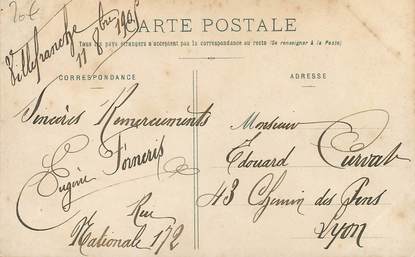 20€
Villefranche
11 8bre 1905
CARTE POSTALE
Tous les pays étrangers n'acceptent pas la correspondance au recto (Se renseigner à la Poste)
CORRESPONDANCE
Sincères Remerciements
Eugène Forneris
Rue
Nationale 172
ADRESSE
Monsieur
Édouard Curvat
43 Chemin des Pins
Lyon